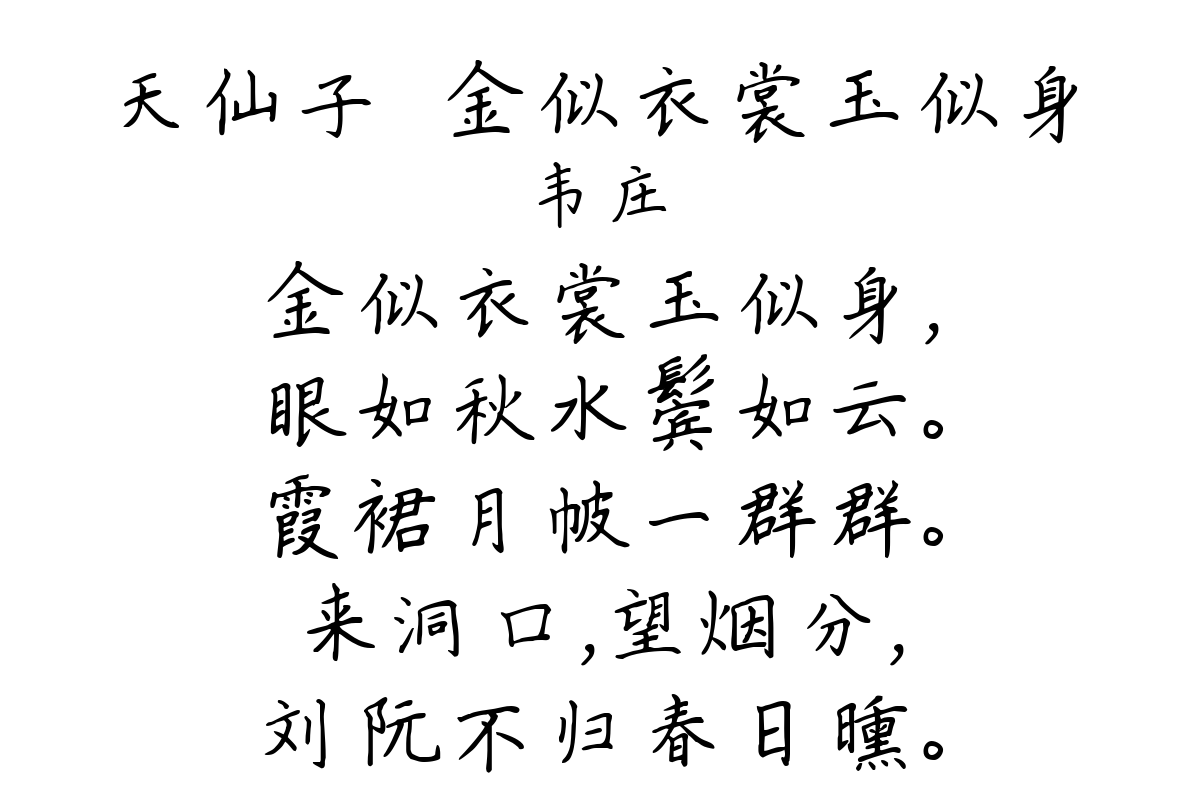 天仙子 金似衣裳玉似身
韦庄
金似衣裳玉似身，
眼如秋水鬓如云。
霞裙月帔一群群。
来洞口，望烟分，
刘阮不归春日曛。